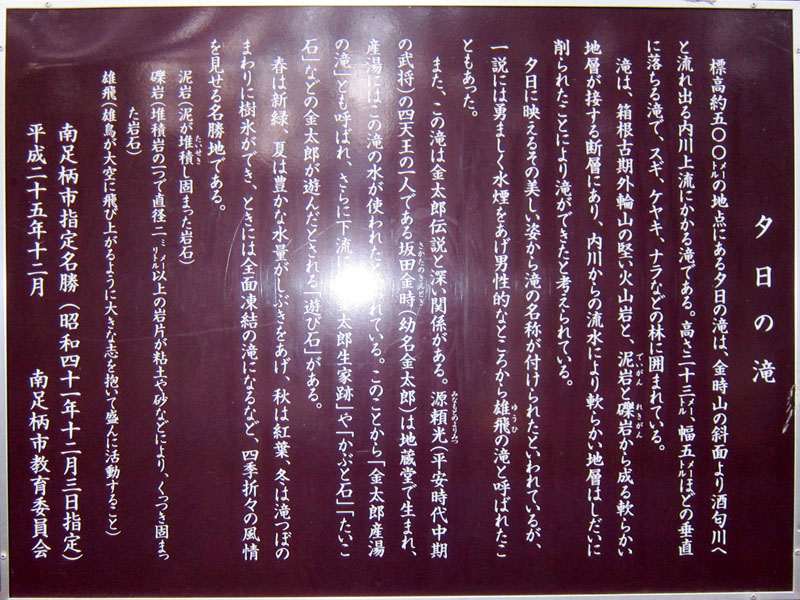 夕日の滝
標高約五〇〇㍍の地点にある夕日の滝は、金時山の斜面より酒匂川へ
と流れ出る内川上流にかかる滝である。高さ二十三㍍、幅五㍍ほどの垂直
に落ちる滝で、スギ、ケヤキ、ナラなどの林に囲まれている。
滝は、箱根古期外輪山の堅い火山岩と、泥岩と礫岩から成る軟らかい
地層が接する断層にあり、内川からの流水により軟らかい地層はしだいに
削られたことにより滝ができたと考えられている。
夕日に映えるその美しい姿から滝の名称が付けられたといわれているが、
一説には勇ましく水煙をあげ男性的なところから雄飛の滝と呼ばれたこ
ともあった。
また、この滝は金太郎伝説と深い関係がある。源頼光(平安時代中期
の武将)の四天王の一人である坂田金時(幼名金太郎)は地蔵堂で生まれ、
産湯にはこの滝の水が使われたといわれている。このことから「金太郎産湯
の滝」とも呼ばれ、さらに下流に 太郎生家跡」や「かぶと石」「たいこ
石」などの金太郎が遊んだとされる「遊び石」がある。
春は新緑、夏は豊かな水量がしぶきをあげ、秋は紅葉、冬は滝つぼの
まわりに樹氷ができ、ときには全面凍結の滝になるなど、四季折々の風情
を見せる名勝地である。
泥岩(泥が堆積し固まった岩石)
礫岩(堆積岩の一つで直径二ミリメートル以上の岩片が粘土や砂などにより、くっつき固まっ
た岩石)
雄飛(雄鳥が大空に飛び上がるように大きな志を抱いて盛んに活動すること)
南足柄市指定名勝(昭和四十一年十二月三日指定)
平成二十五年十二月 南足柄市教育委員会